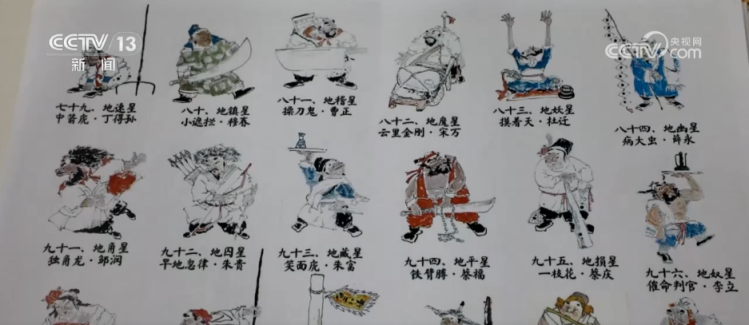 CCTV 13
新闻
央视网
.com
七十九、地速星
中箭虎·丁得孙
八十、地镇星
小遮拦·穆春
八十一、地稽星
操刀鬼·曹正
八十二、地魔星
云里金刚·宋万
八十三、地妖星
摸着天·杜迁
八十四、地幽星
病大虫·薛永
九十一、地角星
独角龙·邹润
九十二、地囚星
旱地忽律·朱贵
九十三、地藏星
笑面虎·朱富
九十四、地平星
铁臂膊·蔡福
九十五、地损星
一枝花·蔡庆
九十六、地奴星
催命判官·李立